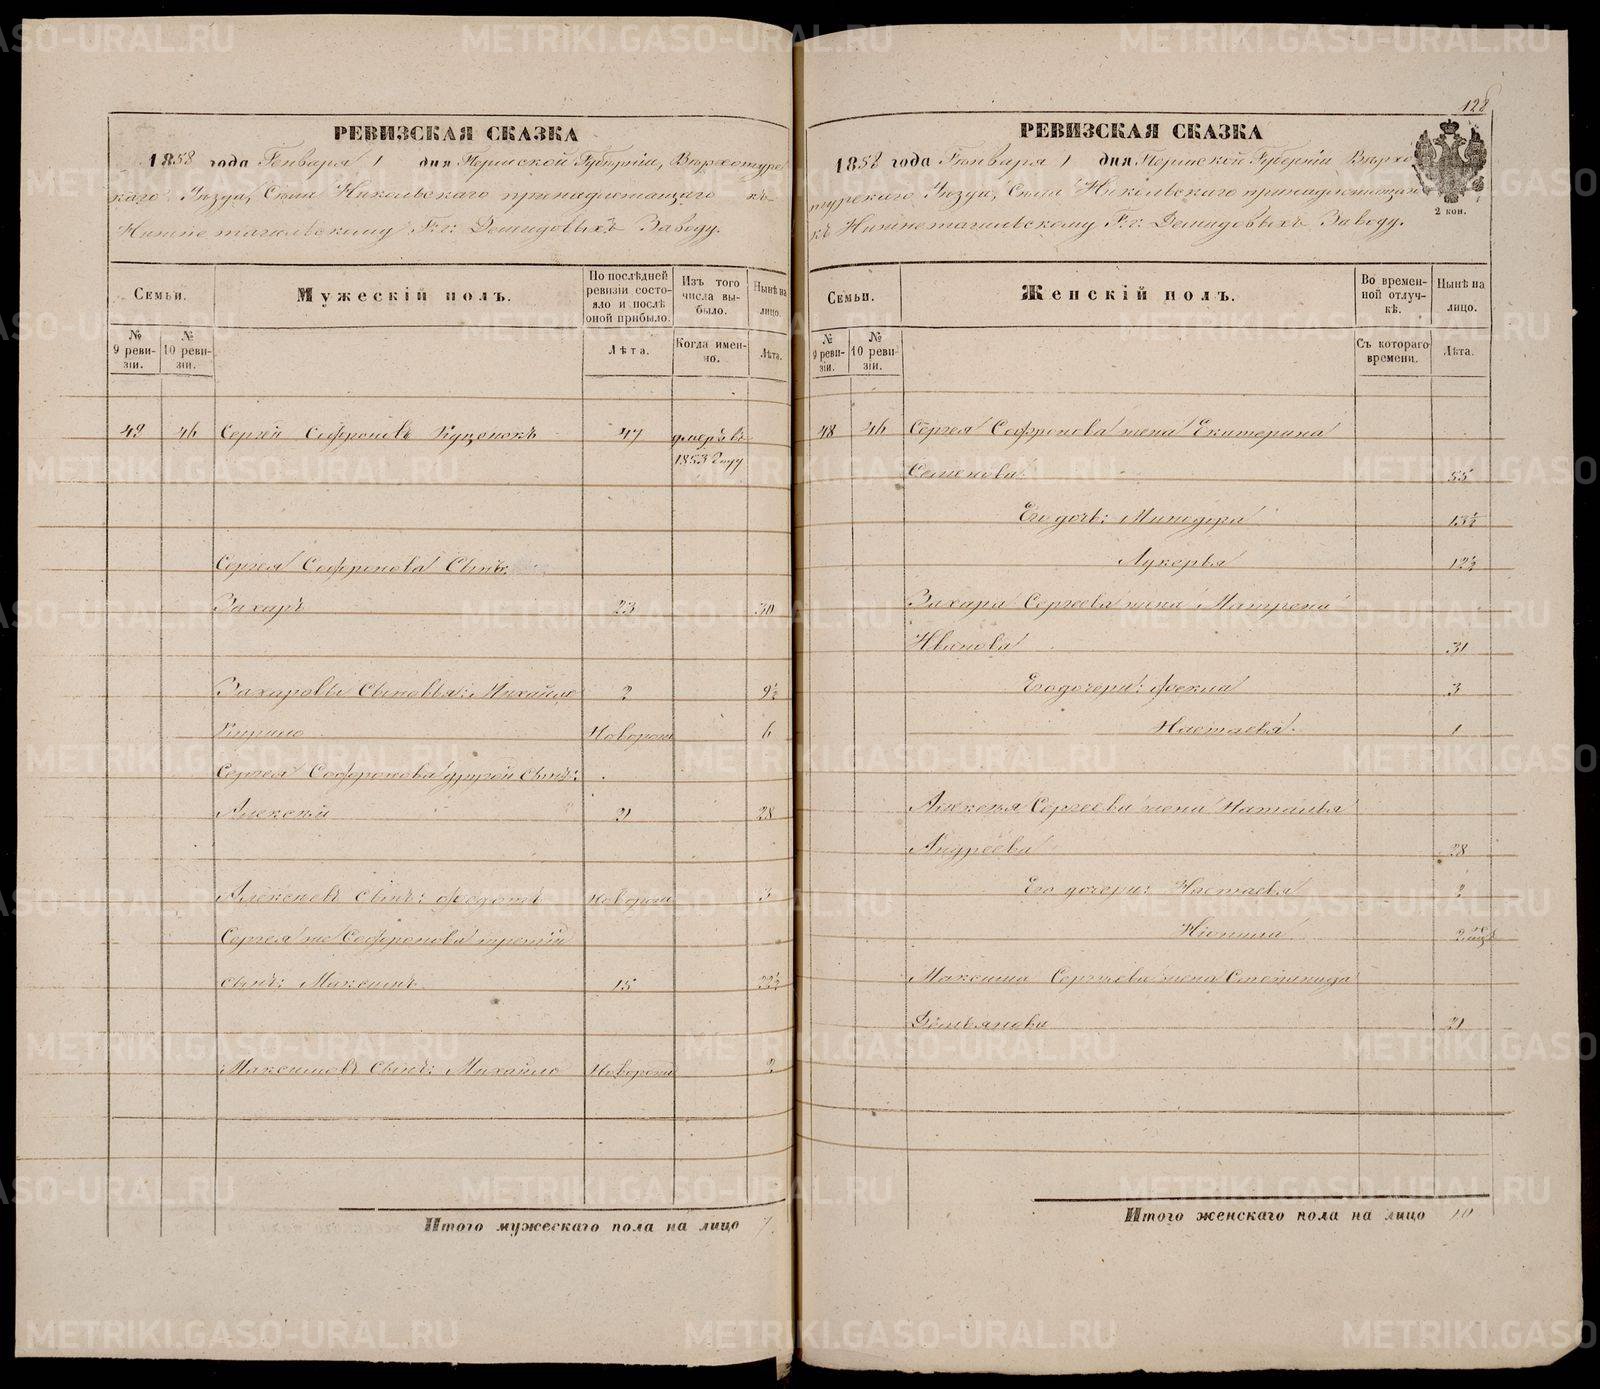 РЕВИЗСКАЯ СКАЗКА
1858 года Генваря 1 дня Пермской Губерніи, Верхотурс-
каго Уѣзда, Села Никольскаго принадлежащаго къ
Нижнетагильскому Г.г. Демидовыхъ Заводу.
Семьи.
Мужескій полъ.
По послѣдней ревизіи состо-
яло и послѣ оной прибыло.
Изъ того числа вы-
было.
Нынѣ на лицо.
№ 9 реви-
зіи.
№ 10 реви-
зіи.
Лѣта.
Когда имен-
но.
Лѣта.
49 46 Сергей Софроновъ 47 умеръ въ
1853 году
Сергея Софронова Сынъ
Захаръ 23 30
Захаровы Сыновья: Михайло 2 9½
Новорож 6
Сергея Софронова другой сынъ:
Алексей 21 28
Алексеевъ Сынъ: Федотъ Новорож 3
Сергея же Софронова третій
сынъ: Максимъ 15 22½
Максимовъ Сынъ: Михайло Новорож 2
Итого мужескаго пола на лицо 7
128
РЕВИЗСКАЯ СКАЗКА
1858 года Генваря 1 дня Пермской Губерніи Верхо-
турскаго Уѣзда, Села Никольскаго принадлежащаго
къ Нижнетагильскому Г.г. Демидовыхъ Заводу.
2 кон.
Семьи.
Женскій полъ.
Во времен-
ной отлуч-
кѣ.
Нынѣ на лицо.
№ 9 реви-
зіи.
№ 10 реви-
зіи.
Съ котораго времени.
Лѣта.
48 46 Сергея Софронова жена Екатерина
Семенова 55
Его дочь: Минодора 13½
Лукерья 12½
Захара Сергеева жена Матрена
Иванова 31
Его дочери: Фекла 3
Настасья 1
Алексея Сергеева жена Наталья
Андреева 28
Его дочери: Настасья 2
Максима Сергеева жена Степанида
Демьянова 21
Итого женскаго пола на лицо 10
METRIKI.GASO-URAL.RU